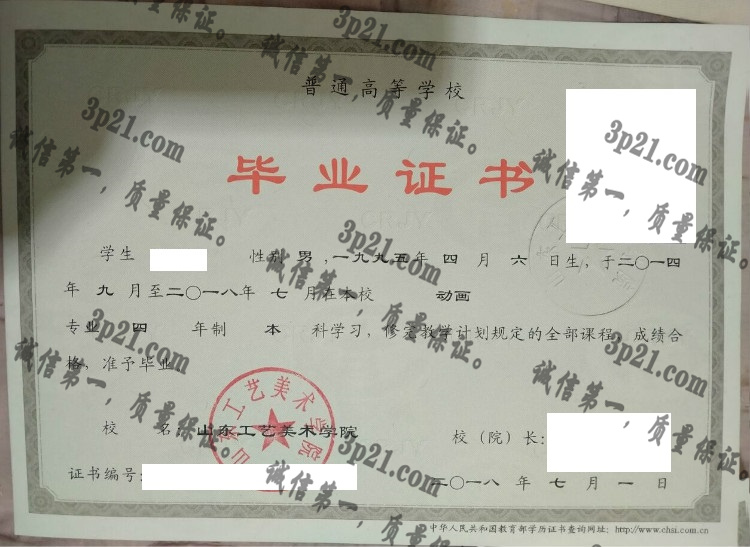 普通高等学校
毕业证书
学生 性别 男 ,一九九五年 四 月 六 日生, 于二〇一四
年 九 月至二〇一八年 七 月在本校 动画
专业 四 年制 本 科学习, 修完教学计划规定的全部课程, 成绩合
格, 准予毕业
校 名 山东工艺美术学院 校(院)长:
山东工艺美术学院
证书编号: 二〇一八 年 七 月 一 日
中华人民共和国教育部学历证书查询网址: http://www.chsi.com.cn
3p21.com
诚信第一, 质量保证。
3p21.com
诚信第一, 质量保证。
3p21.com
诚信第一, 质量保证。
3p21.com
诚信第一, 质量保证。
3p21.com
诚信第一, 质量保证。
3p21.com
诚信第一, 质量保证。
3p21.com
诚信第一, 质量保证。
3p21.com
诚信第一, 质量保证。